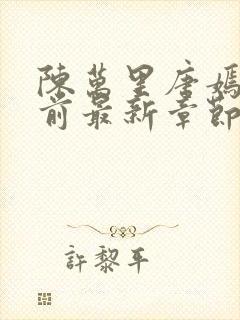 陳萬里唐嫣
前最新章節
許黎平